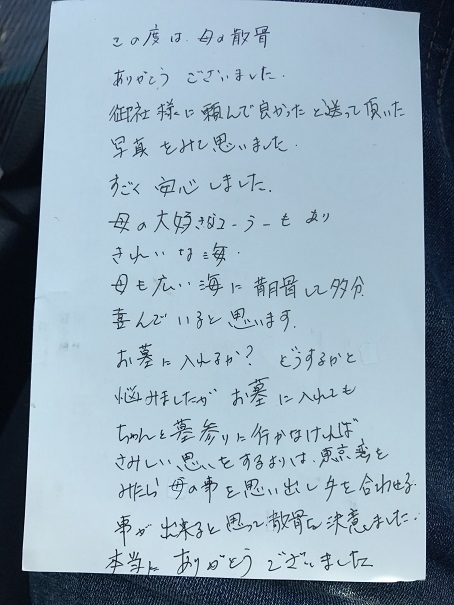 この度は、母の散骨
ありがとう ございました.
御社様に頼んで良かったと送って頂いた
写真をみて思いました.
すごく安心しました.
母の大好きなコーラーもあり
きれいな海.
母も広い海に散骨して多分
喜んでいると思います.
お墓に入れるか? どうするかと
悩みましたが お墓に入れても
ちゃんと墓参りに行かなければ
さみしい思いをするよりは、東京湾を
みたら 母の事を思い出し手を合わせる.
事が出来ると思って散骨に決意しました.
本当に ありがとう ございました